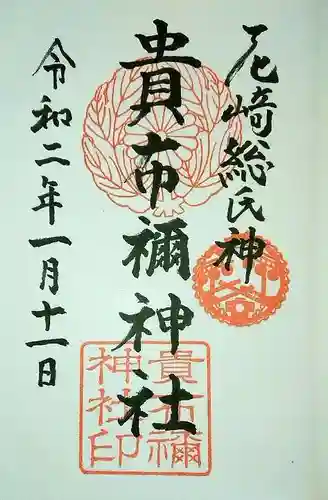 尼崎総氏神
貴布禰神社
令和二年一月十一日
貴布禰
神社印